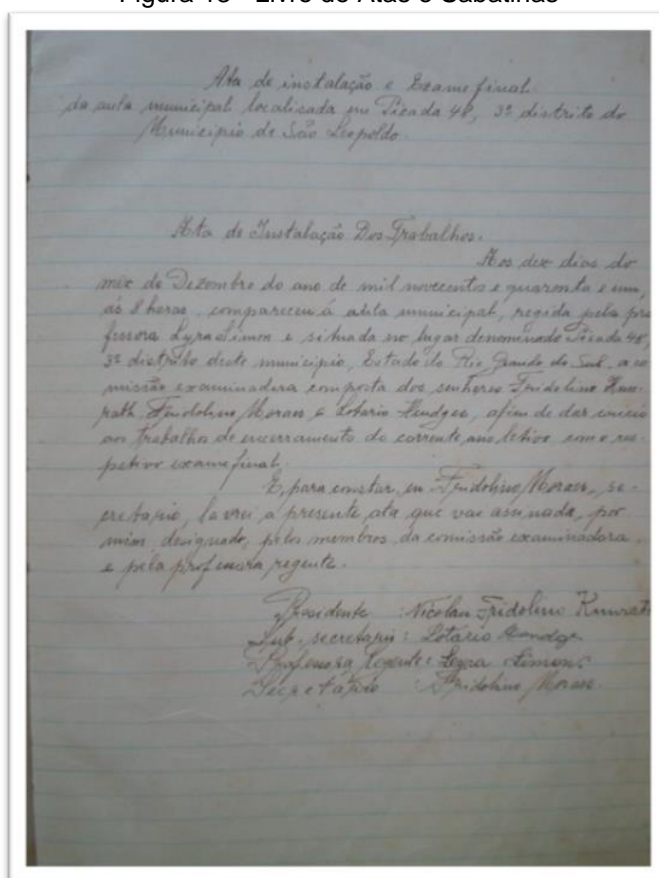 Livro de Atas e Sabatinas
Ata de instalação e Exame final
da aula municipal localisada em Picada 48, 3º distrito do
Municipio de São Leopoldo.
Ata de Instalação Dos Trabalhos.
Aos dez dias do
mêz de Dezembro do ano de mil novecentos e quarenta e um,
ás 8 horas, compareceu á aula municipal, regida pela pro
fessora Lyra Simon e situada no lugar denominado Picada 48,
3º distrito deste municipio, Estado do Rio Grande do Sul, a co
missão examinadora composta dos senhores Fridolino
Fridolino Moraes e Lotario Hendges, afim de dar inicio
aos trabalhos de encerramento do corrente ano letivo, com o res-
petivo exame final.
E, para constar, eu Fridolino Moraes, se-
cretario, lavrei a presente ata que vae assinada, por
mim, designado, pelos membros da comissão examinadora,
e pela professora regente.
Presidente : Nicolau Fridolino
Sub. secretario : Lotário
Professora Regente : Lyra Simon
Secretário : Fridolino Moraes.